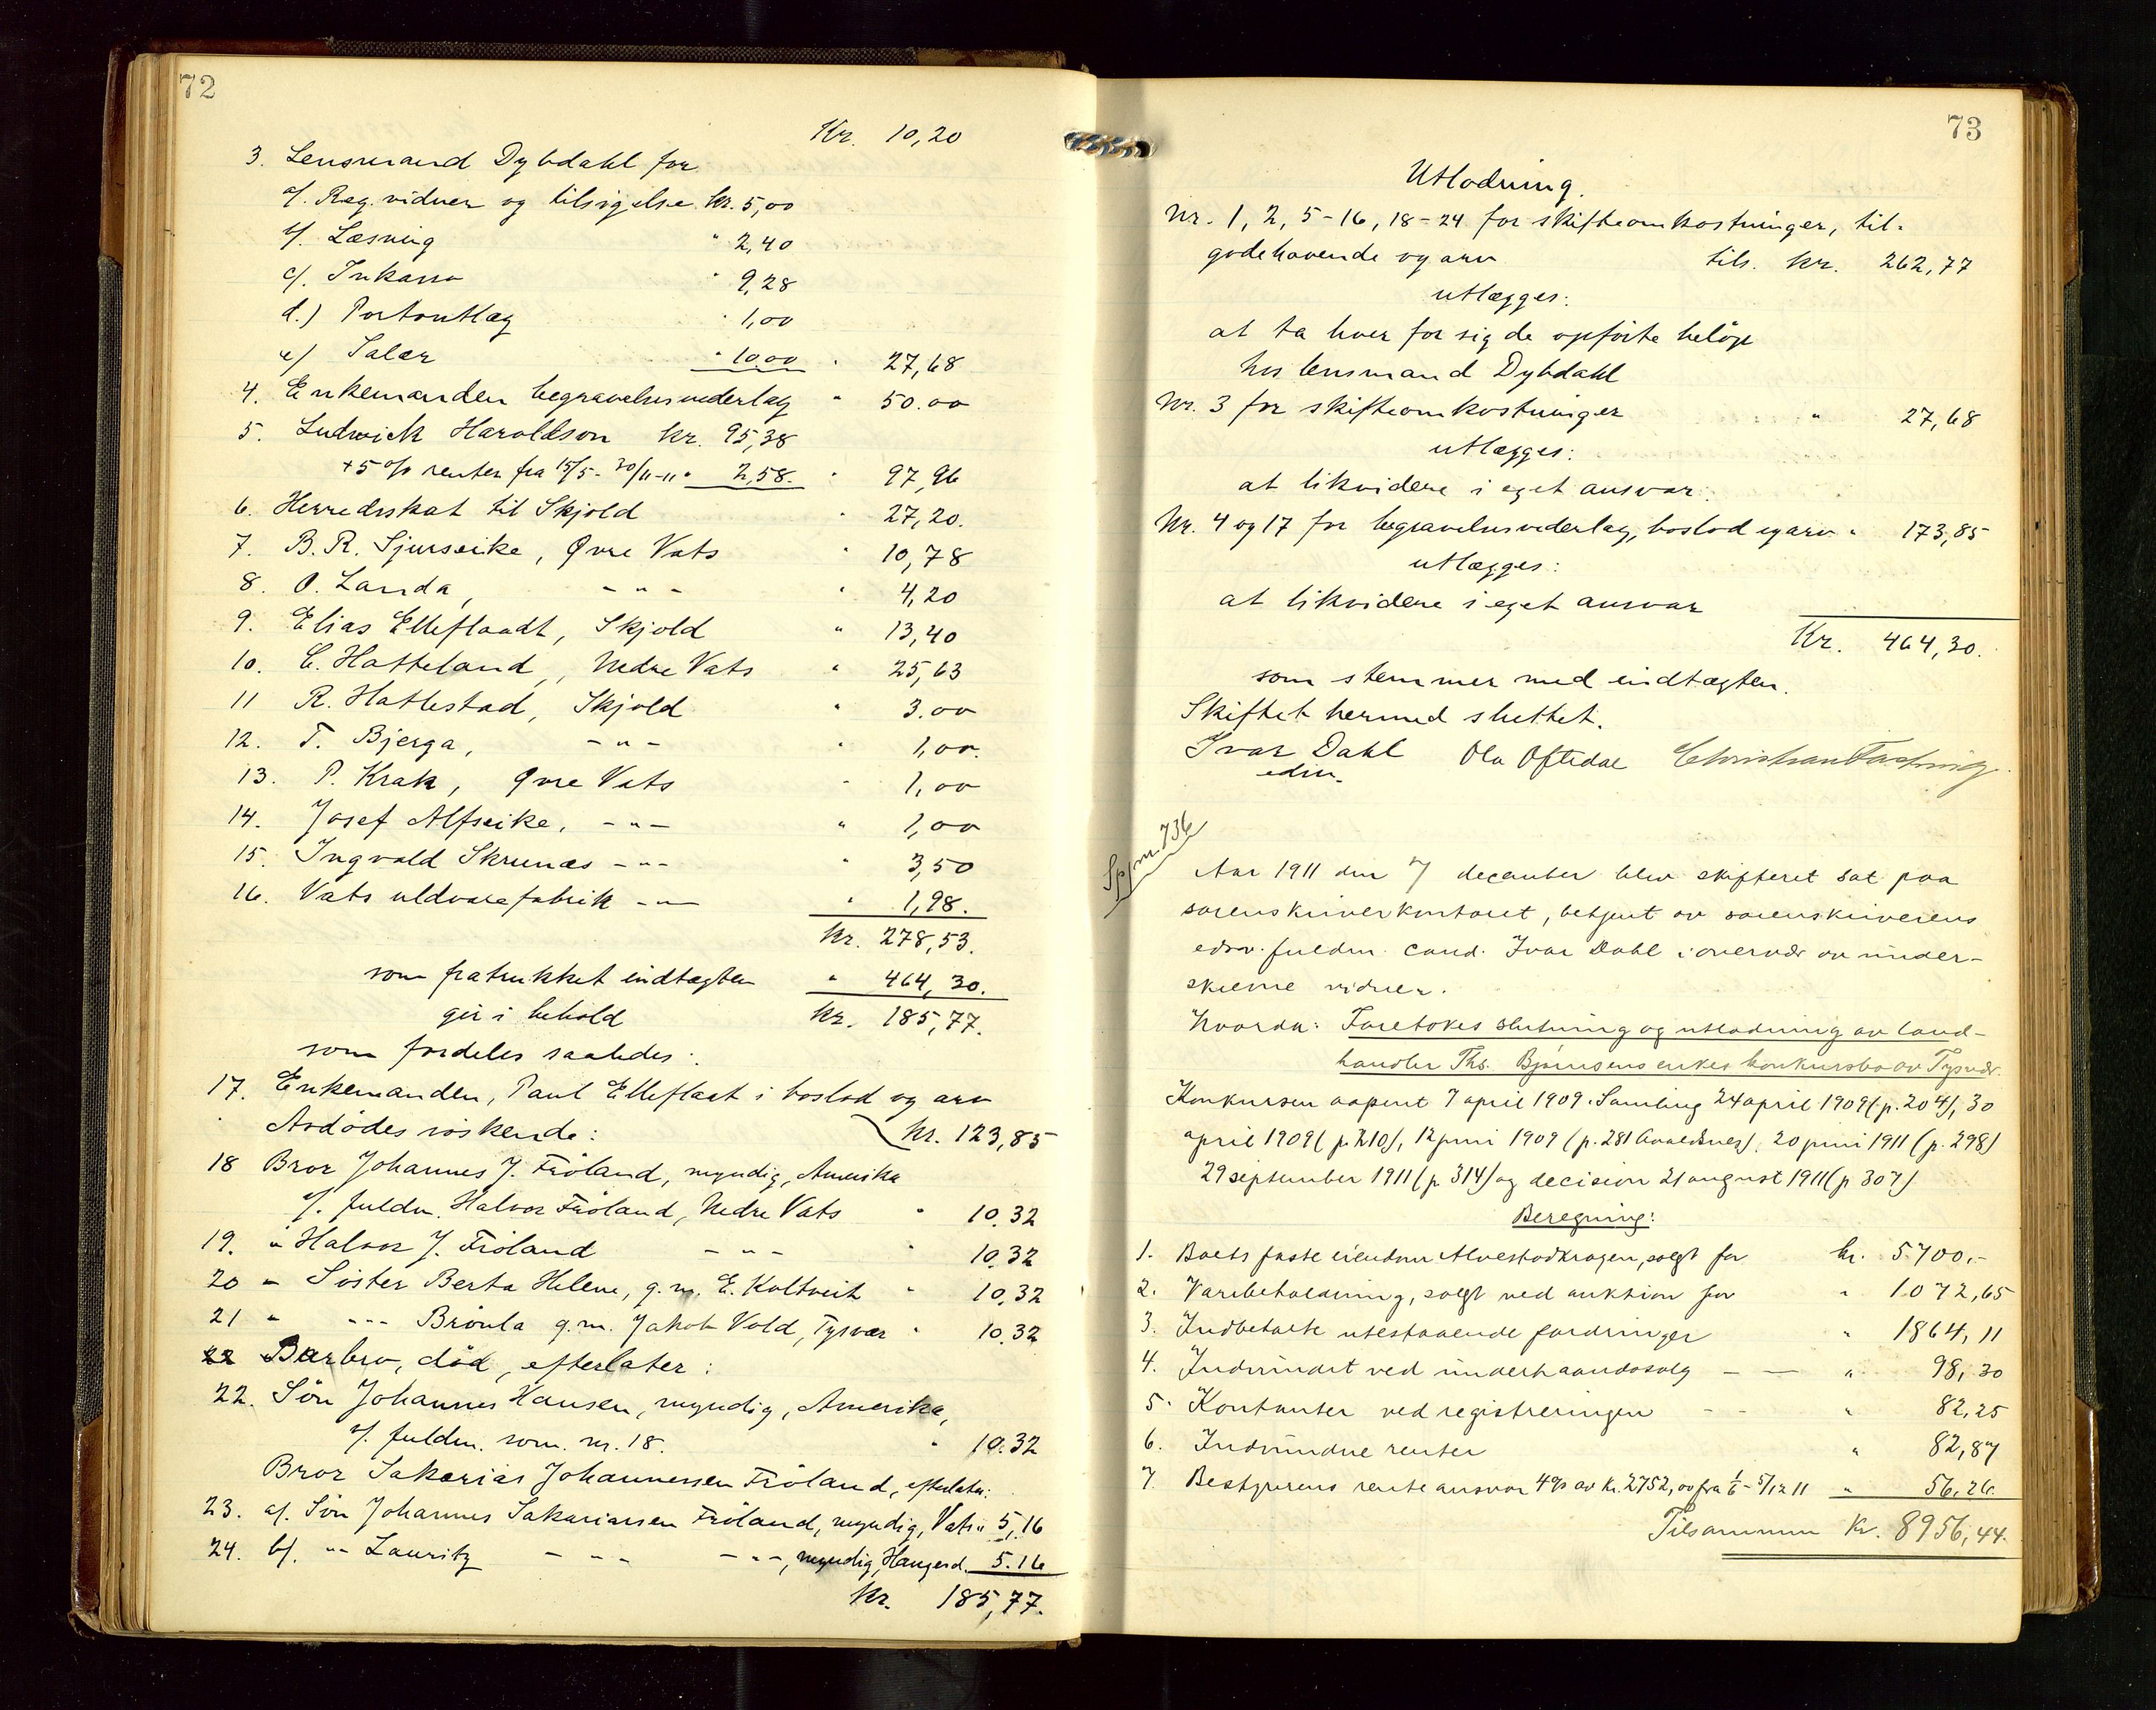 72
Kr. 10,20
3. Lensmand Dybdahl for
a/. Reg. vidner og tilsigelse kr. 5,00
b/. Læsning " 2,40
c/. Inkasso " 9,28
d.) Portoutlæg " 1,00
e/ Salær " 10.00 " 27,68
4. Enkemanden begravelsesvederlag " 50.00
5. Ludwick Haroldson kr. 95,38
+5 o/o renter fra 15/5 - 30/11-11 " 2,58. " 97,96
6. Herredsskat til Skjold " 27,20.
7. B. R. Sjurseike, Øvre Vats " 10,78
8. O. Landa, - " - " 4,20
9. Elias Elleflaadt, Skjold " 13,40
10. E. Hatteland, Nedre Vats " 25,63
11 R. Hatlestad, Skjold " 3.00
12. T. Bjerga, - " - " 1,00.
13. P. Krak, Øvre Vats " 1,00
14. Josef Alfseike, - " - " 1,00
15. Ingvald Skrunæs - " - " 3,50
16. Vats uldvarefabrik - " - " 1,98.
Kr. 278,53.
som fratrukket indtægten " 464,30.
gir i behold Kr. 185,77.
som fordeles saaledes:
17. Enkemanden, Paul Elleflaat i boslod og arv
Avdødes søskende: Kr. 123,85
18 Bror Johannes J. Frøland, myndig, Amerika
v/. fuldm. Halvor Frøland, Nedre Vats " 10.32
19. " Halvor J. Frøland - " - " 10.32
20 " Søster Berta Helene, g.m. E. Koltveit " 10,32
21 " - " - Brønla g.m. Jakob Vold, Tysvær " 10.32
22 Barbro, død, efterlater:
22. Søn Johannes Hansen, myndig, Amerika,
v/. fuldm. som nr. 18. " 10.32
Bror Sakarias Johannessen Frøland, efterlater:
23. a/. Søn Johannes Sakariassen Frøland, myndig, Vats " 5,16
24. b/. " Lauritz - " - - " -, myndig, Haugesd. 5.16
Kr. 185,77.
73
Utlodning.
Nr. 1, 2, 5-16, 18-24 for skifteomkostninger, til-
godehavende og arv tils. kr. 262,77
utlægges:
at ta hver for sig de opførte beløp
hos lensmand Dybdahl
Nr. 3 for skifteomkostninger " 27,68
utlægges:
at likvidere i eget ansvar.
Nr. 4 og 17 for begravelsesvederlag, boslod og arv " 173,85
utlægges:
at likvidere i eget ansvar
Kr. 464,30.
som stemmer med indtægten.
Skiftet hermed sluttet.
Ivar Dahl Ola Oftedal Christian
edsv.
736
Aar 1911 den 7 december blev skifteret sat paa
sorenskriverkontoret, betjent av sorenskriverens
edsv. fuldm. cand. Ivar Dahl i overvær av under-
skrevne vidner.
Hvorda: Foretokes slutning og utlodning av land-
handler Ths. Bjørnsens enkes konkursbo av Tysvær.
Konkursen aapent 7 april 1909. Samling 24 april 1909 (p. 204), 30
april 1909 (p. 210), 12 juni 1909 (p. 281 Avaldsnes), 20 juni 1911 (p. 298)
29 september 1911 (p 314) og decision 21 august 1911 (p 307)
Beregning:
1. Boets faste eiendom Alvestadkrogen, solgt for kr. 5700,-
2. Varebeholdning, solgt ved auktion for " 1072,65
3. Indbetalte utestaaende fordringer " 1864,11
4. Indvundet ved underhaandssalg - - " 98,30
5. Kontanter ved registreringen - - " 82,25
6. Indvundne renter " 82,87
7. Bestyrerens renteansvar 4% av kr. 2752,00 fra 1/6 - 5/12 11 " 56,26.
Tilsammen Kr. 8956,44.